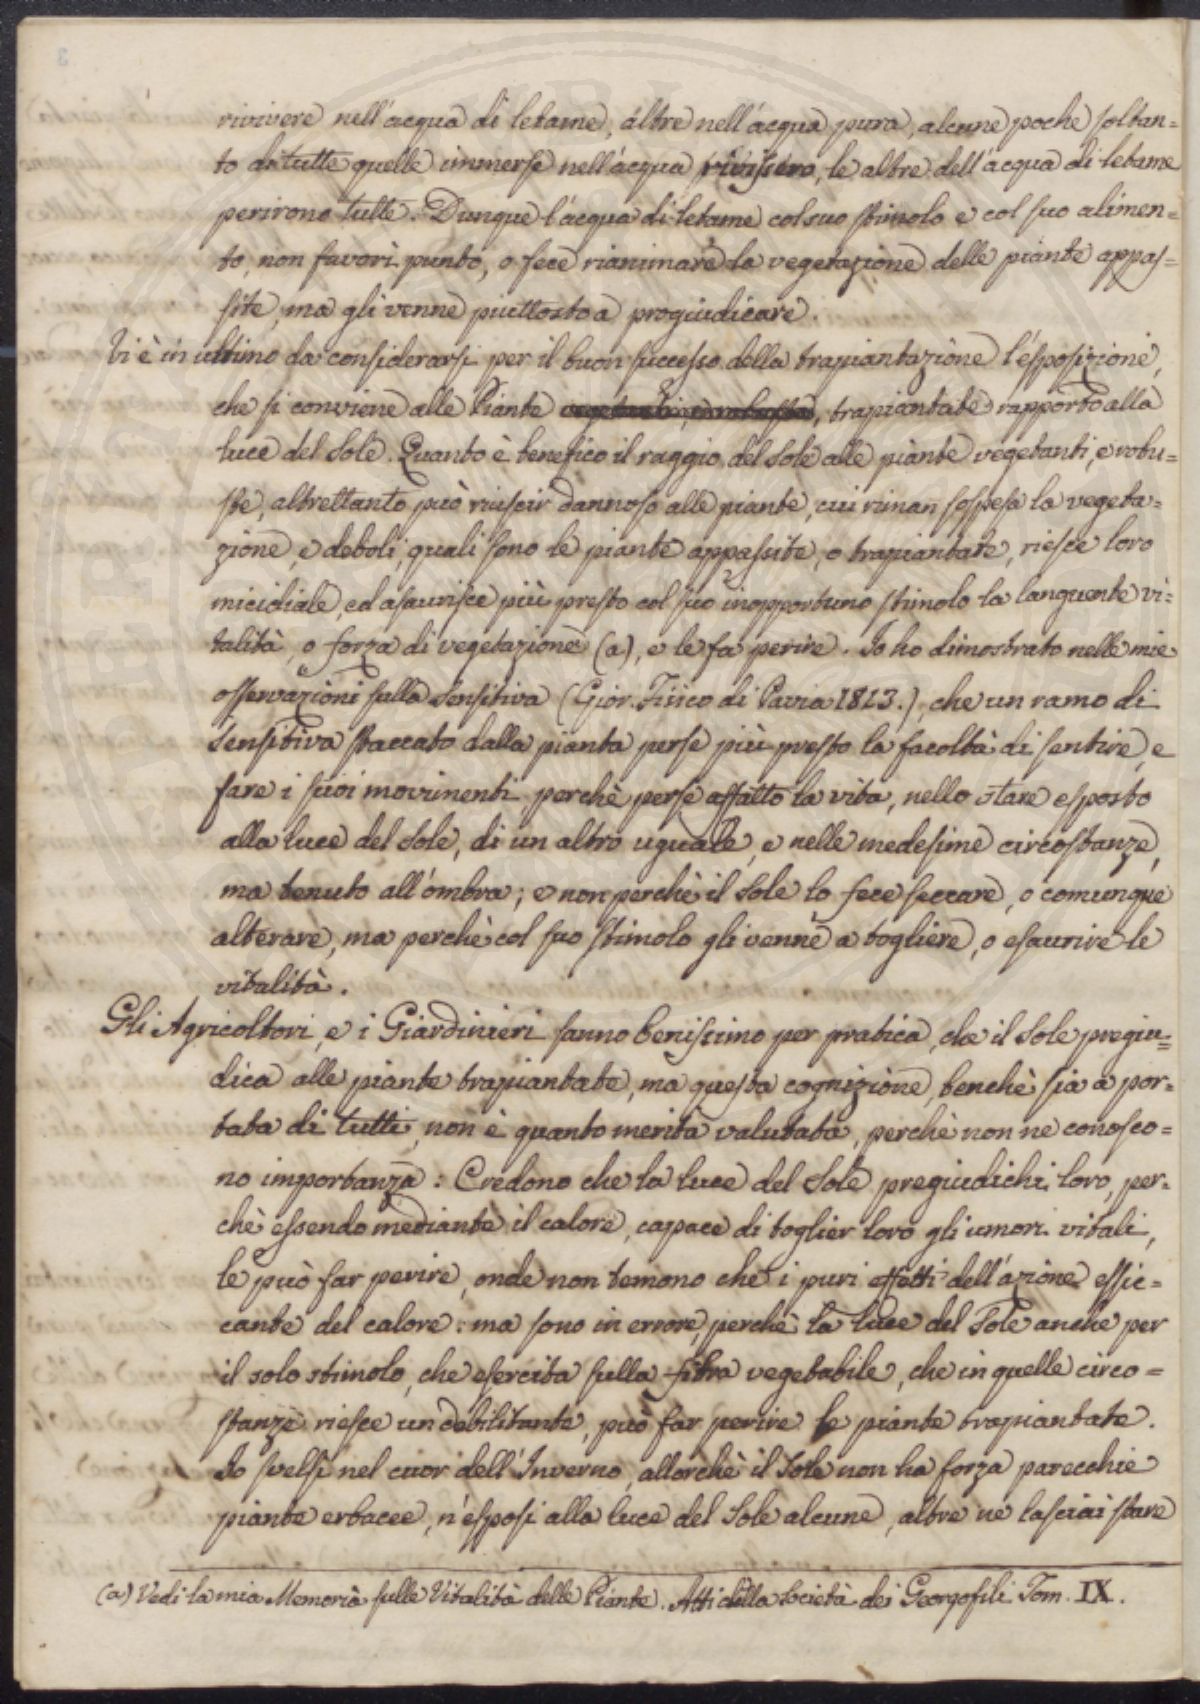 rivivere nell'acqua di letame, altre nell'acqua pura, alcune poche soltan=
to di tutte quelle immerse nell'acqua rivissero, le altre dell'acqua di letame
perirono tutte. Dunque l'acqua di letame col suo stimolo e col suo alimen=
to, non favorì punto, o fece rianimare la vegetazione delle piante appas=
site, ma gli venne piuttosto a progiudicare.
Vi è in ultimo da considerarsi per il buon successo della trapiantazione l'esposizione,
che si conviene alle Piante trapiantate rapporto alla
luce del Sole. Quanto è benefico il raggio del Sole alle piante vegetanti, e robu=
ste, altrettanto può riuscir dannoso alle piante, cui riman sospesa la vegeta=
zione, e deboli, quali sono le piante appassite, o trapiantate, riesce loro
micidiale, ed asaurisce più presto col suo inopportuno stimolo la languente vi=
talità, o forza di vegetazione (a), e le fa perire. Io ho dimostrato nelle mie
osservazioni sulla Sensitiva (Gior. Fisico di Pavia 1813.), che un ramo di
Sensitiva staccato dalla pianta perse più presto la facoltà di sentire, e
fare i suoi movimenti perchè perse affatto la vita, nello stare esposto
alla luce del Sole, di un altro uguale, e nelle medesime circostanze,
ma tenuto all'ombra; e non perchè il Sole lo fece seccare, o comunque
alterare, ma perchè col suo stimolo gli venne a togliere, o esaurire le
vitalità.
Gli Agricoltori, e i Giardinieri sanno benissimo per pratica, che il Sole pregiu=
dica alle piante trapiantate, ma questa cognizione, benchè sia a por=
tata di tutti, non è quanto merita valutata, perchè non ne conosco=
no importanza: Credono che la luce del Sole pregiudichi loro, per=
chè essendo mediante il calore, capace di toglier loro gli umori vitali,
le può far perire, onde non temono che i puri effetti dell'azione essic=
cante del calore: ma sono in errore, perchè la luce del Sole anche per
il solo stimolo, che esercita sulla fibra vegetabile, che in quelle circo=
stanze riesce un debilitante, può far perire le piante trapiantate.
Io svelsi nel cuor dell'Inverno, allorchè il Sole non ha forza parecchie
piante erbacee, n'esposi alla luce del Sole alcune, altre ne lasciai stare
(a) Vedi la mia Memoria sulle Vitalità delle Piante. Atti della Società dei Georgofili Tom. IX.